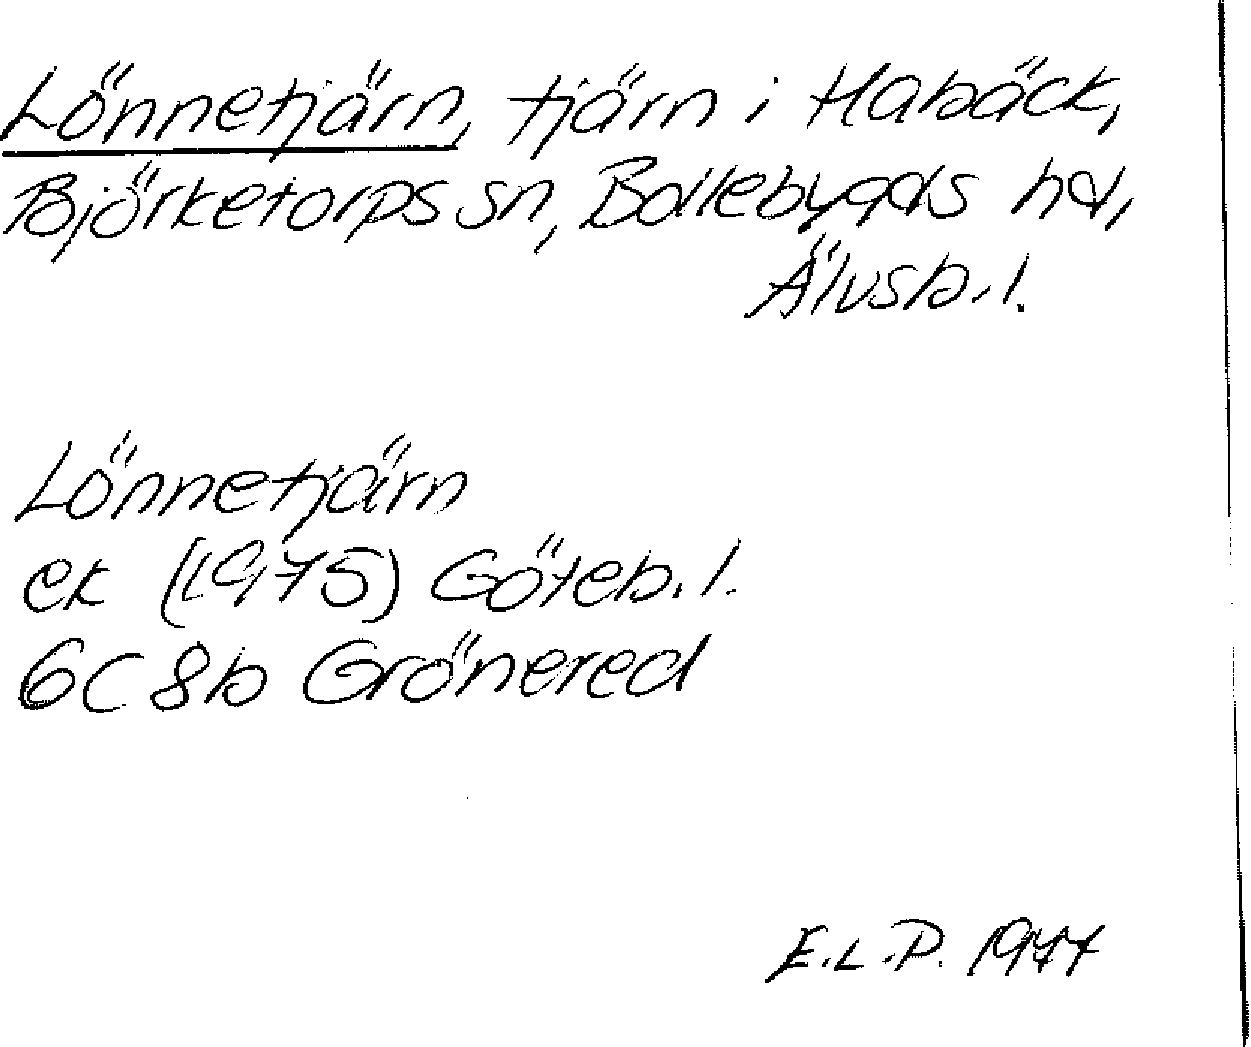 Lönnetjärn, tjärn i Habäck,
Björketorps sn, Bollebygds hd,
Älvsb. l.
Lönnetjärn
ek (1975) Göteb. l.
6C 8b Grönered
E.L.P. 1977